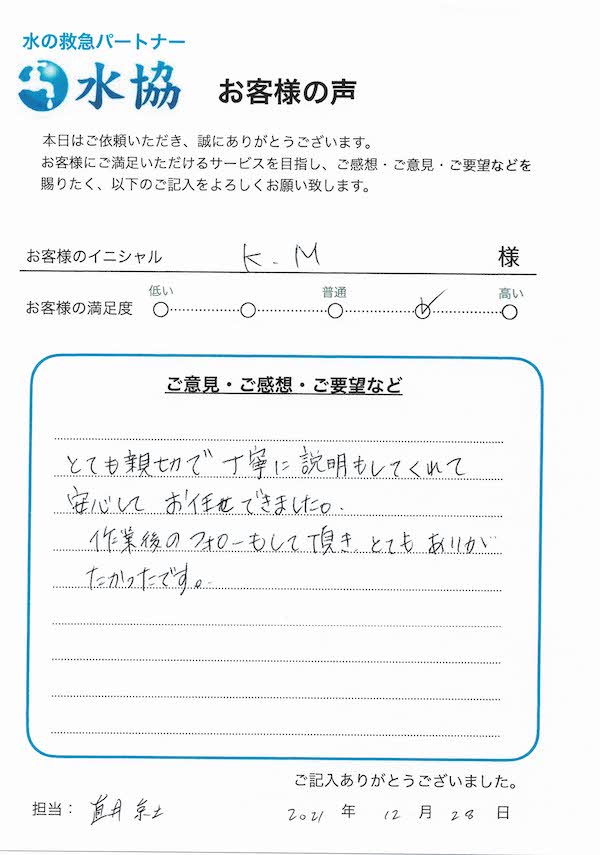 水の救急パートナー
水協 お客様の声
本日はご依頼いただき、誠にありがとうございます。
お客様にご満足いただけるサービスを目指し、ご感想・ご意見・ご要望などを
賜りたく、以下のご記入をよろしくお願い致します。
お客様のイニシャル K.M 様
低い 普通 高い
お客様の満足度
ご意見・ご感想・ご要望など
とても親切で丁寧に説明もしてくれて
安心してお任せできました。
作業後のフォローもして頂き、とてもありが
たかったです。
ご記入ありがとうございました。
担当： 2021 年 12 月 28 日